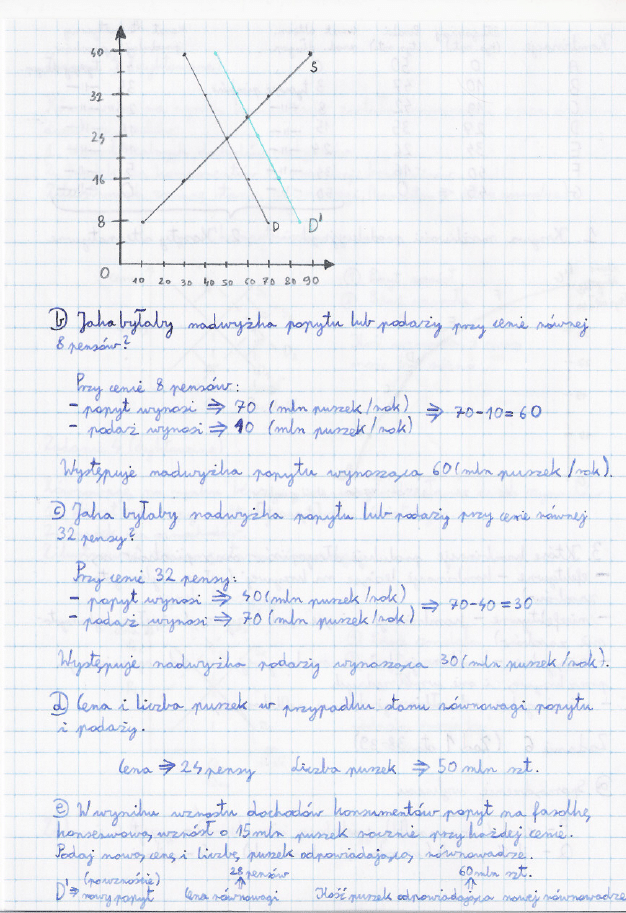 40
32
24
16
8
0
10 20 30 40 50 60 70 80 90
S
D
D'
b) Jaka byłaby nadwyżka popytu lub podaży przy cenie równej
8 pensów?
Przy cenie 8 pensów:
- popyt wynosi ⇒ 70 (mln puszek/rok)
- podaż wynosi ⇒ 10 (mln puszek/rok)
⇒ 70-10=60
Występuje nadwyżka popytu wynosząca 60 (mln puszek/rok).
c) Jaka byłaby nadwyżka popytu lub podaży przy cenie równej
32 pensy?
Przy cenie 32 pensy:
- popyt wynosi ⇒ 40 (mln puszek/rok)
- podaż wynosi ⇒ 70 (mln puszek/rok)
⇒ 70-40=30
Występuje nadwyżka podaży wynosząca 30 (mln puszek/rok).
d) Cena i liczba puszek w przypadku stanu równowagi popytu
i podaży.
Cena ⇒ 24 pensy Liczba puszek ⇒ 50 mln szt.
e) W wyniku wzrostu dochodów konsumentów popyt na fasolkę
konserwową wzrósł o 15 mln puszek rocznie przy każdej cenie.
Podaj nową cenę i liczbę puszek odpowiadającą równowadze.
(po wzroście) 28 pensów 60 mln szt.
D' ⇒ nowy popyt Cena równowagi Ilość puszek odpowiadająca nowej równowadze